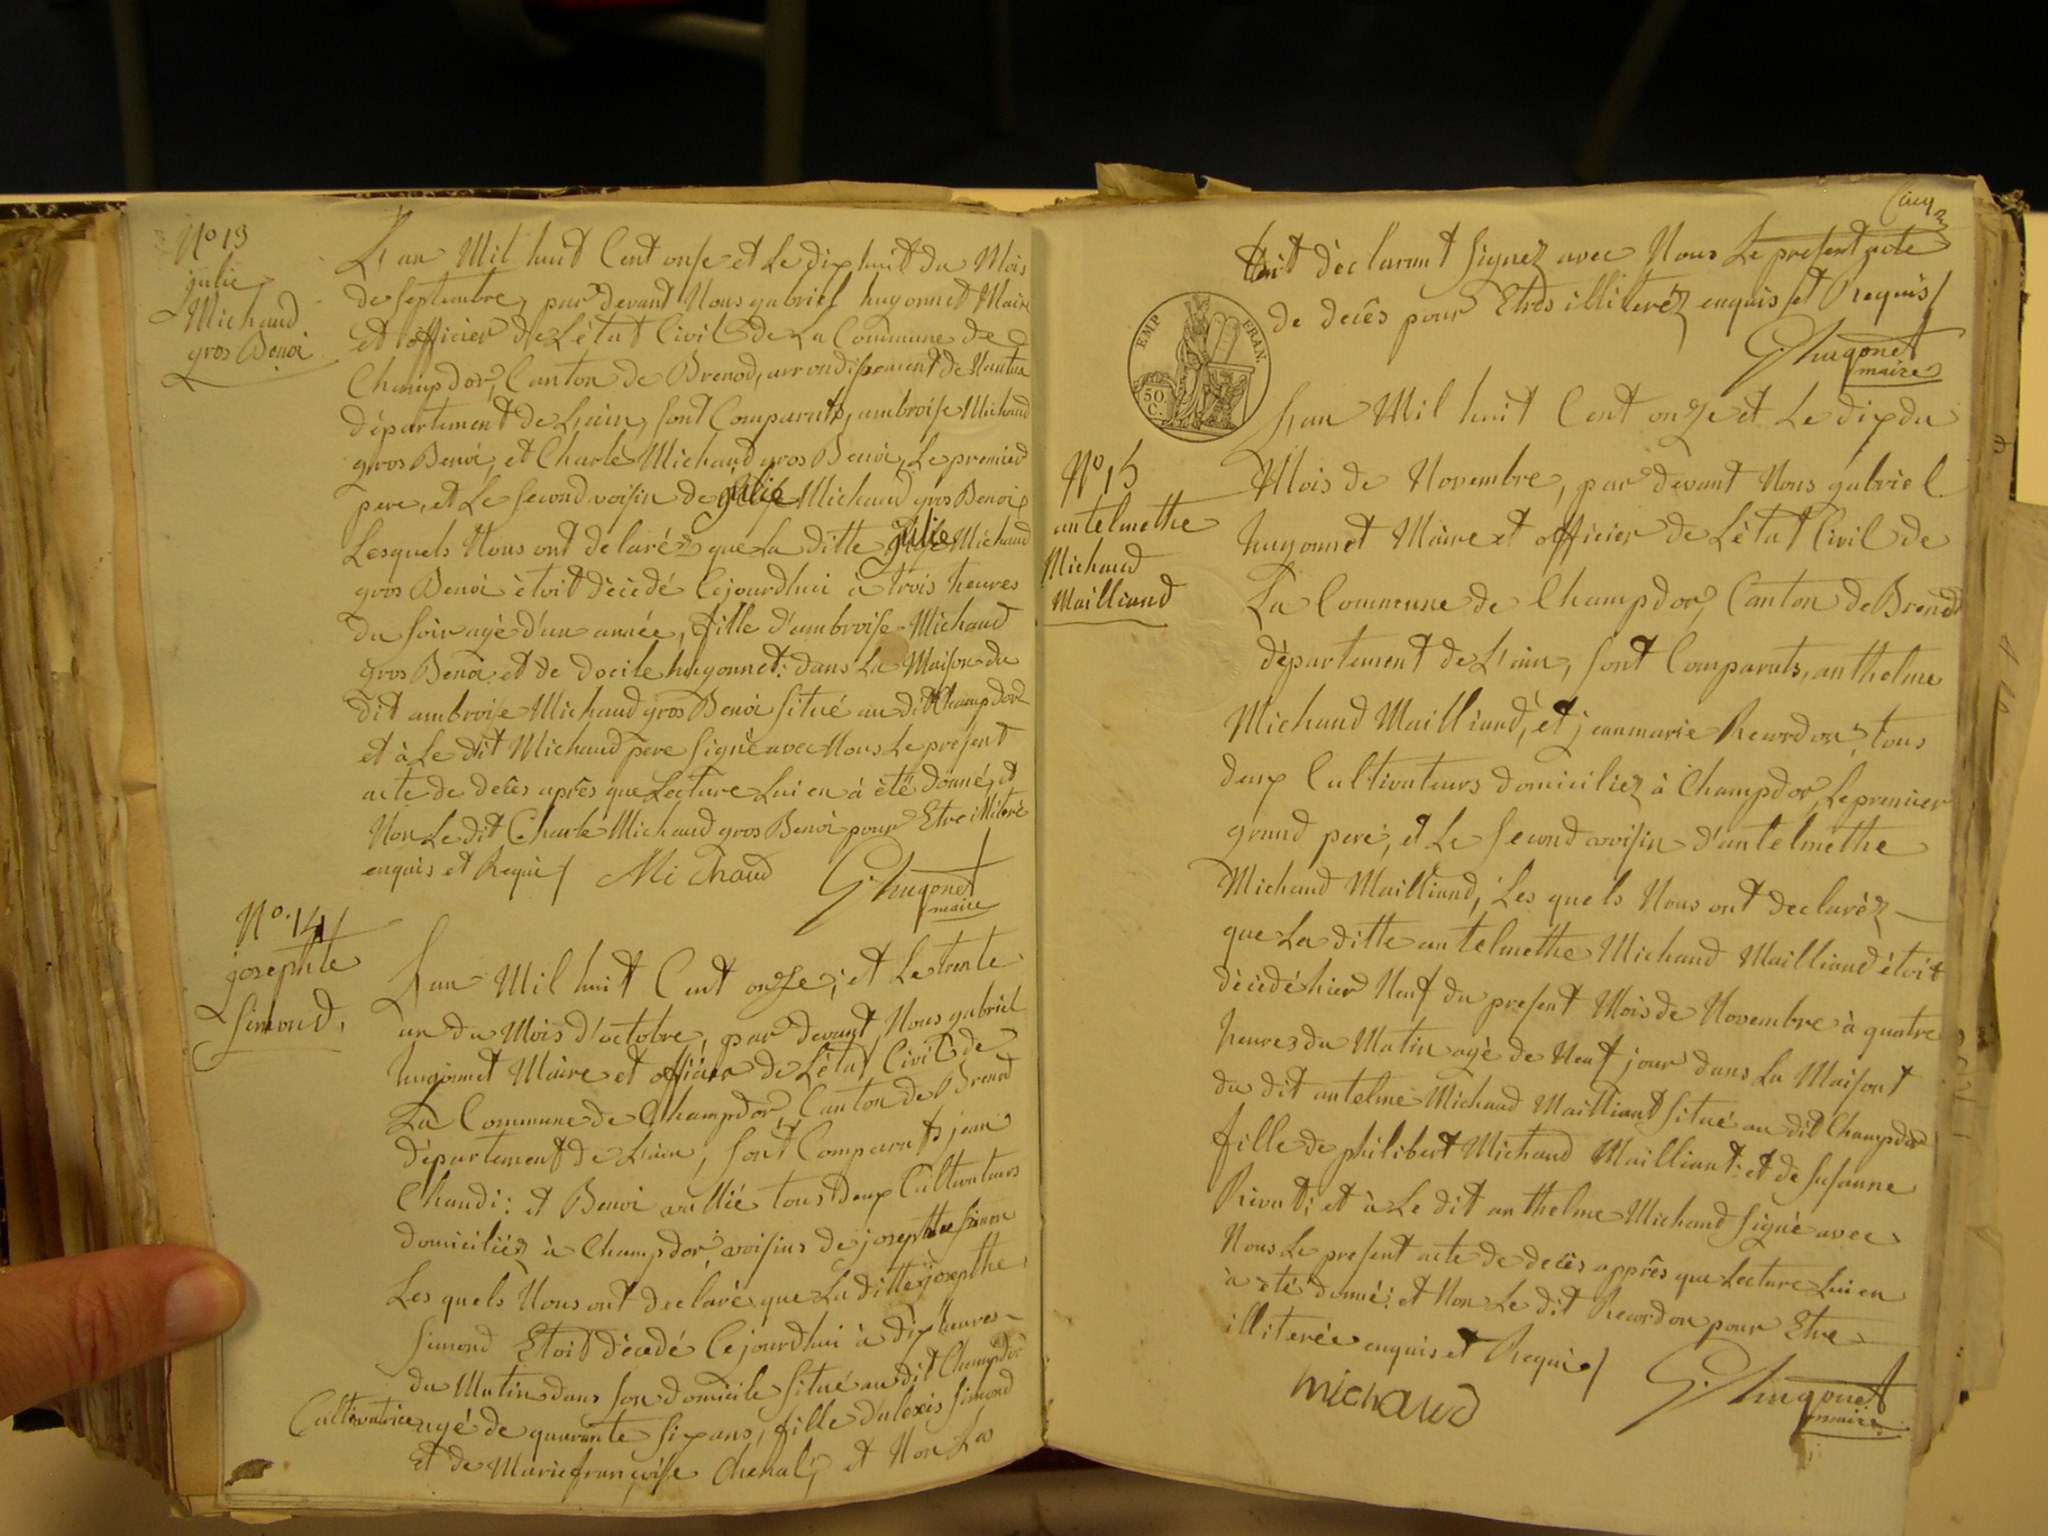 No 13
julie
Michaud
gros Benoi
L'an Mil huit Cent onse et Le dixhuit du Mois
de Septembre, par devant Nous gabriel hugonnet Maire
et officier de L'état Civil de La Commune de
Champdor, Canton de Brenod, arrondissement de Nantua
département de L'ain, sont Comparuts, ambroise Michaud
gros Benoi, et Charle Michaud gros Benoi, Le premier
pere, et Le Second voisin de julie Michaud gros Benoi
Lesquels Nous ont délaréz que La ditte julie Michaud
gros Benoi ètoit dècèdé Cejourdhui à trois heures
du soir agé d'un année, fille d'ambroise Michaud
gros Benoi et de docile hugonnet: dans La Maison du
dit ambroise Michaud gros Benoi situé au dit Champdor
et à Le dit Michaud pere Signé avec Nous Le present
acte de decès après que Lecture Lui en à été donné, et
Non Le dit Charle Michaud gros Benoi pour Etre illiteré
enquis et Requis/ Michaud G. hugonet
maire
No. 14
josephte
Simond,
L'an Mil huit Cent onze; et Le trente
un du Mois d'octobre, par devant Nous gabriel
hugonnet Maire et officier de L'état Civil de
La Commune de Champdor, Canton de Brenod
département de L'ain, sont Comparuts jean
Chaudi: et Benoi vullié tous deux Cultivateurs
domiciliéz à Champdor, voisins de josephte Simon
Les quels Nous ont declaré que La ditte josepthe
Simond Etoit dècedé Cejourdhui à dix heures
du Matin dans son domicile situé au dit Champdor
Cultivatrice agé de quarante six ans, fille d'alexis Simond
Et de Marie françoise Chenal; et Non La
Cinq
dit déclarant Signez avec Nous Le present acte
de decês pour Etres illiteréz enquis et Requis/
G. hugonet
maire
EMP FRAN.
50 C.
L'an Mil huit Cent onze et Le dix du
No 15
antelmethe
Michaud
Mailliand
Mois de Novembre, par devant Nous gabriel
hugonnet Maire et officier de L'état Civil de
La Commeune de Champdor, Canton de Brenod
département de L'ain, sont Comparuts, anthelme
Michaud Mailliand, et jeanmarie Reardon, tous
deux Cultivateurs domiciliez à Champdor, Le premier
grand pere, et Le Second voisin d'antelmethe
Michaud Mailliand, Les quels Nous ont declaréz
que La ditte antelmethe Michaud Mailliand étoit
dècèdé hier Neuf du present Mois de Novembre à quatre
heures du Matin agé de Neuf jour dans La Maisont
du dit antelme Michaud Mailliant situé au dit Champdor
fille de philibert Michaud Mailliant: et de Susanne
Rivat; et à Le dit anthelme Michaud Signé avec
Nous Le present acte de decès apprês que Lecture Lui en
à èté donné; et Non Le dit Reardon pour Etre
illiterée enquis et Requis/
michaud
G. hugonet
maire